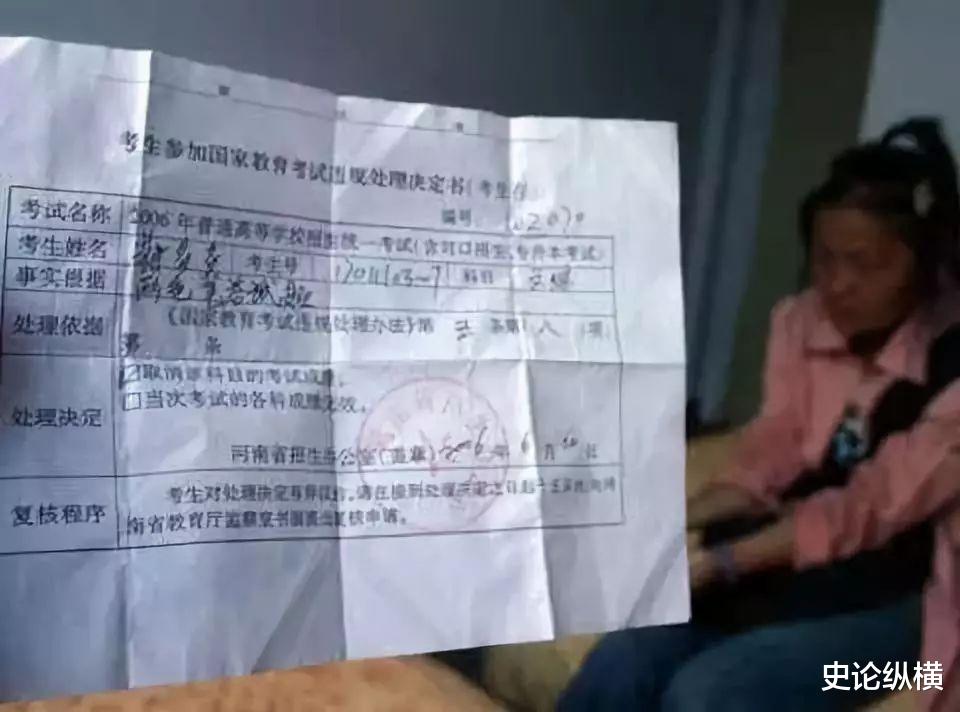 考生参加国家教育考试违规处理决定书(考生存)
编号:
考试名称 2006年普通高等学校招生统一考试(含对口招生,专升本考试)
考生姓名 考生号 科目 文综
事实依据
处理依据 《国家教育考试违规处理办法》第 条第 八 项
第 条
处理决定 ☑取消该科目的考试成绩。
□当次考试的各科成绩无效。
河南省招生办公室(盖章) 2006年6月 日
复核程序 考生对处理决定有异议的,请在接到处理决定之日起十五日内,向河
南省教育厅监察室书面提出复核申请。
史论纵横